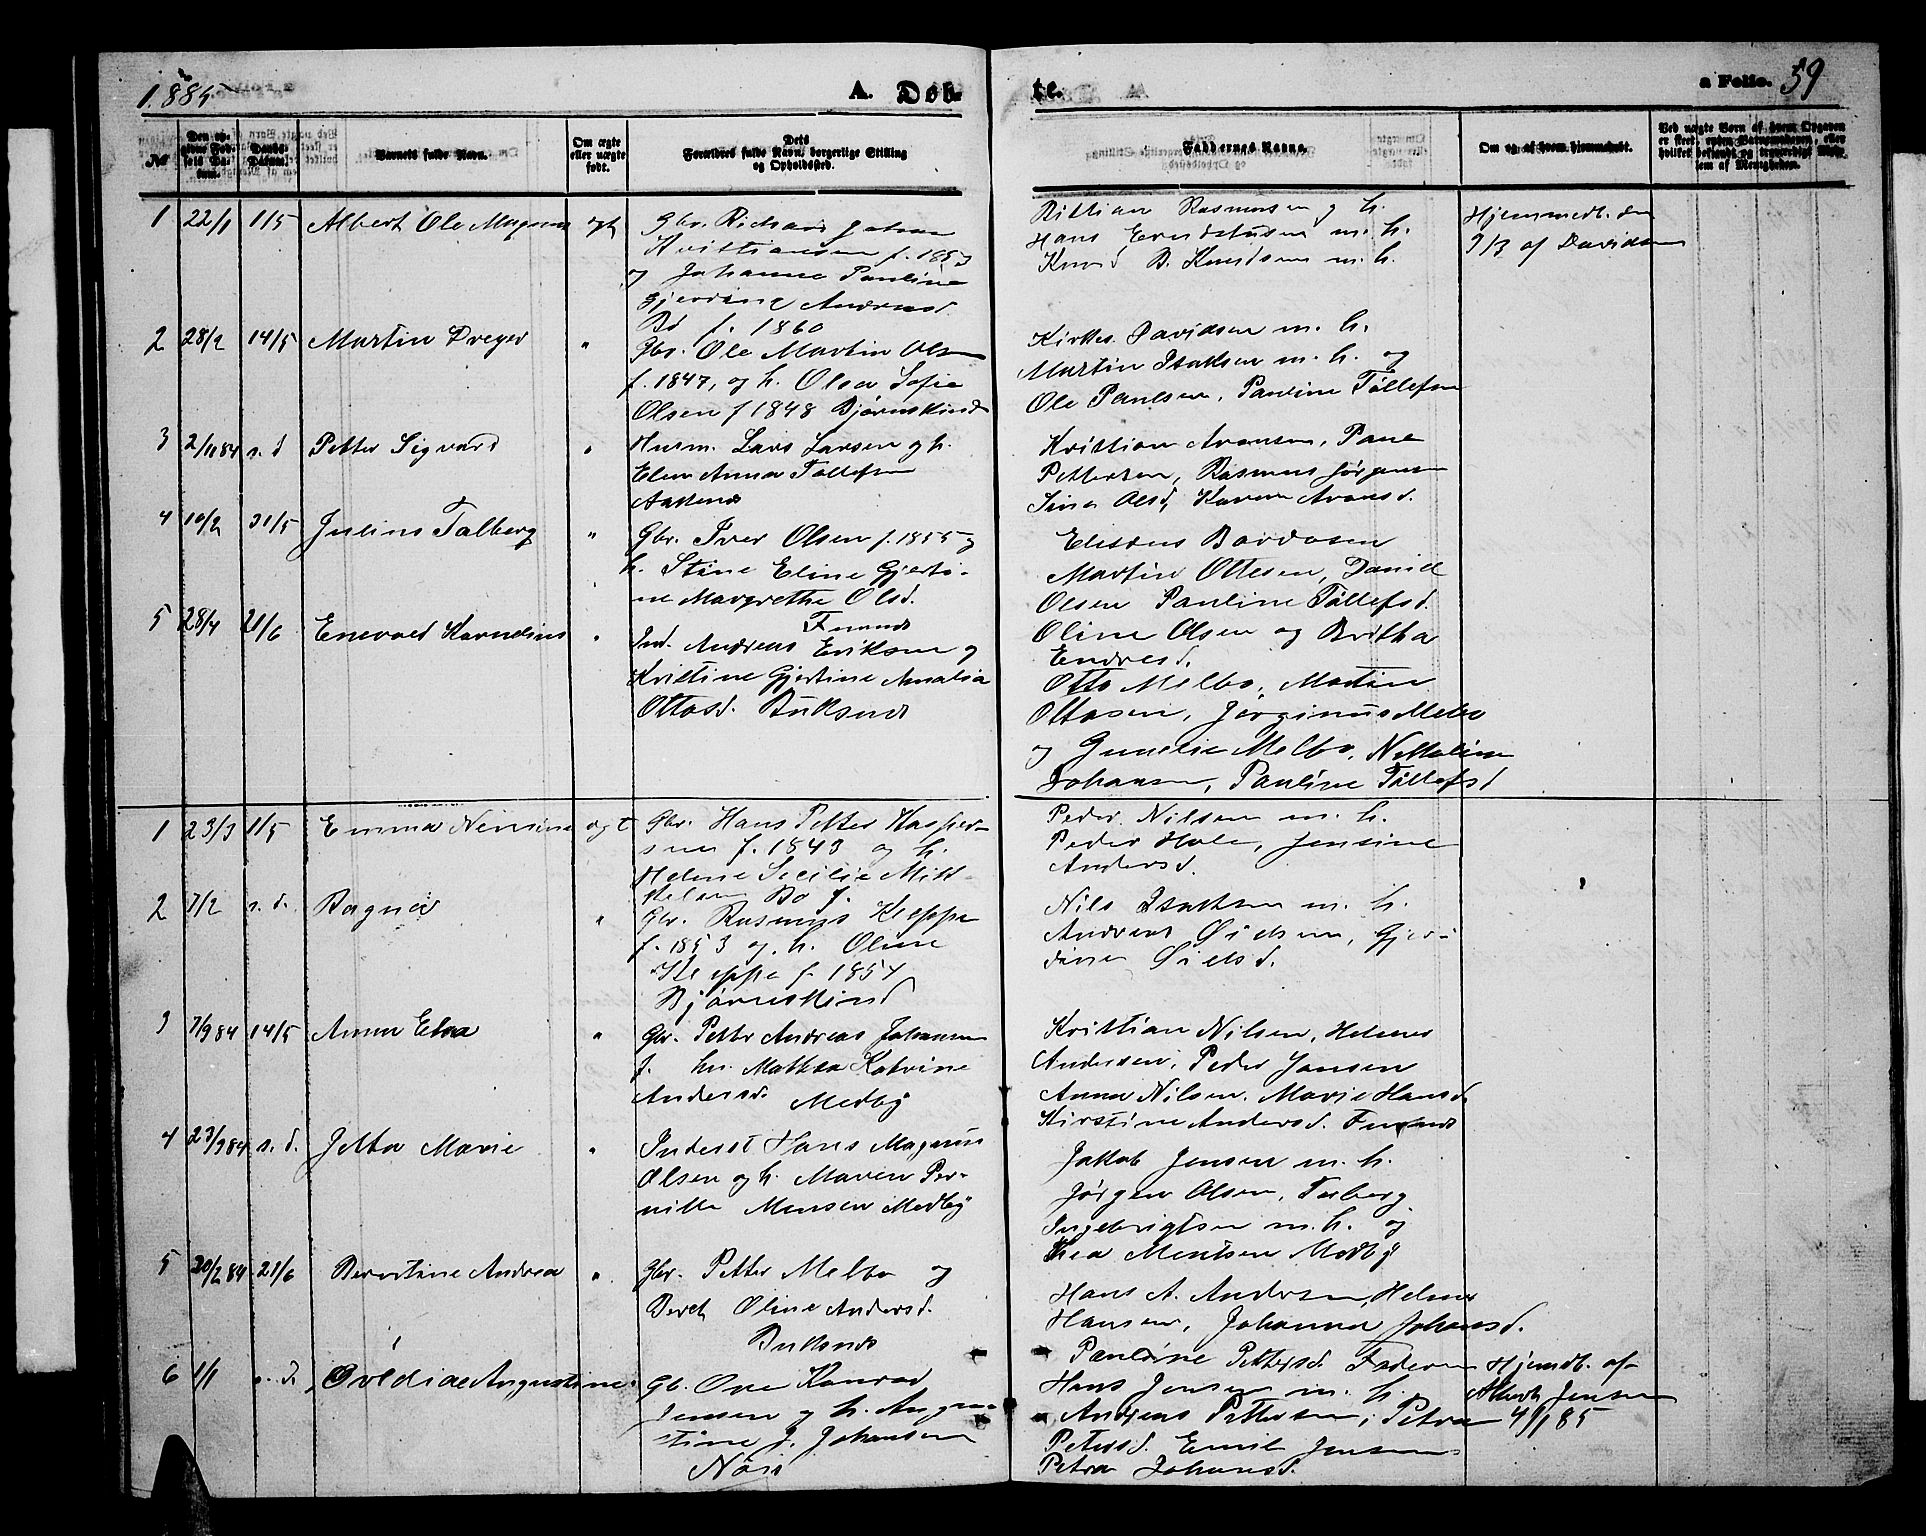 1885
A. Døb-
te.
a Folio. 59
No
Den opgivne Fødsels Datum.
Daabs-Datum.
Barnets fulde Navn.
Om ægte eller uægte født.
Dets Forældres fulde Navn, borgerlige Stilling og Opholdssted.
Faddernes Navne.
Om og af hvem hjemmedøbt.
Ved uægte Børn af hvem Opgaven er skeet, enten Barnemoderen, eller hvilket bekjendt og troværdigt Medlem af Menigheden.
1 22/1 1/5 Albert Ole Magnus ægt Gbr. Richard Johan
Kristiansen f. 1853
og Johanna Pauline
Gjerdine Andreasd.
Bø f. 1860
Kristian Rasmussen og h.
Hans Evertsen m. h.
Knud B. Knudsen m. h.
Hjemmedb. den
9/3 af Davidsen
2 28/2 14/5 Martin Dreyer " Gbr. Ole Martin Olsen
f. 1847, og h. Olea Sofie
Olsen f 1848 Bjørnskind
Kirkes. Davidsen m. h.
Martin Isaksen m. h. og
Ole Paulsen, Pauline Tøllefsen
3 2/11 84 s. d Petter Sigvard " Husm. Lars Larsen og h.
Elen Anna Tøllefsen
Kristian Aronsen, Pane
Pettersen, Rasmus Jørgensen
Sina Olsd, Karen Aronsd.
4 10/2 31/5 Julius Talberg " Gbr. Iver Olsen f. 1855 og
h. Stine Eline Gjerti-
ne Margrethe Olsd.
Elisæus Bardosen
Martin Ottesen, Daniel
Olsen Pauline Tøllefsd.
Oline Olsen og Britha
Endresd.
5 28/4 21/6 Enevold Kornelius " Ind. Andreas Eriksen og
Kristine Gjertine Amalia
Ottosd. Buksnes
Otto Melbo, Martin
Ottosen, Jørginus Melbo
og Gunelie Melbo, N. Maline
Johansen, Pauline Tøllefsd
1 23/3 1/5 Emma Nensine ægt Gbr. Hans Petter Kasper-
sen f. 1843 og h.
Helene Secilie Mik-
kelsen Bø f.
Peder Nilsen m. h.
Peder Hole, Jensine
Andersd.
2 7/2 s. d. Ragna " Gbr. Rasmus Kleppe
f. 1853 og h. Oline
Kleppe f. 1854
Bjørnskind
Nils Isaksen m. h.
Andreas Eidsen, Gjer-
dine Eidsd.
3 7/9 84 14/5 Anna Elea " Gbr. Petter Andreas Johansen
f. hu. Mathea Katrine
Andersd. Medby
Kristian Nilsen, Helenes
Andersen, Peder Jansen
Anna Nilsen, Marie Hansd.
Kirstine Andersd. Finnes
4 23/9 84 s. d. Jetta Marie " Inderst Hans Magnus
Olsen og h. Maren Per-
nille Monsen Medby
Jakob Jensen m. h.
Jørgen Olsen, Torberg
Ingebrigtsen m. h. og
Thea Mentsen Medby
5 20/2 84 21/6 Berntine Andrea " Gbr. Petter Melbo og
Beret Oline Andersd.
Buksnes
Hans A. Andersen, Helmer
Hansen, Johanna Johansd.
Pauline Pettersd. Faderen
6 1/1 s. d. Ovidia Augustine " Gb. Ove Konrad
Jensen og h. Augu-
stine J. Johansen
Nøis
Hans Jensen m. h.
Andreas Pettersen, Petra
Petersd. Emil Jensen
Petra Johansd.
Hjemdb. af
Albert Jensen
4/1 85